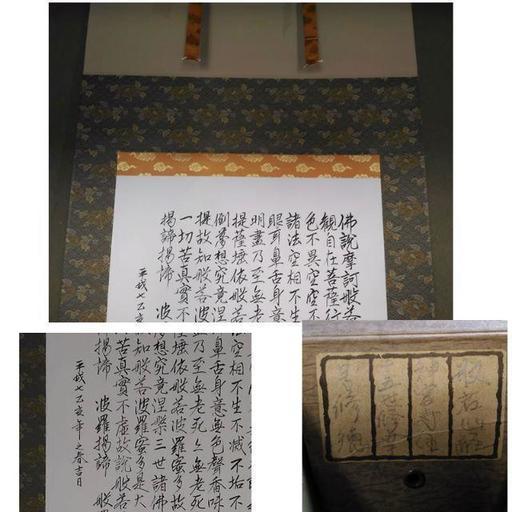 佛說摩訶般若
観自在菩薩行
色不異空空不
諸法空相不生
眼耳鼻舌身意
明盡乃至無老
提薩埵依般若
倒夢想究竟涅
提故知般若波
一切苦真實不
揭諦揭諦 波
平成七乙亥
空相不生不滅不垢不
鼻舌身意無色聲香味
盡乃至無老死亦無老死
薩埵依般若波羅蜜多故
夢想究竟涅槃三世諸佛
故知般若波羅蜜多是大
苦真實不虛故說般若
揭諦 波羅揭諦 般
平成七乙亥年之春吉日
般若心経